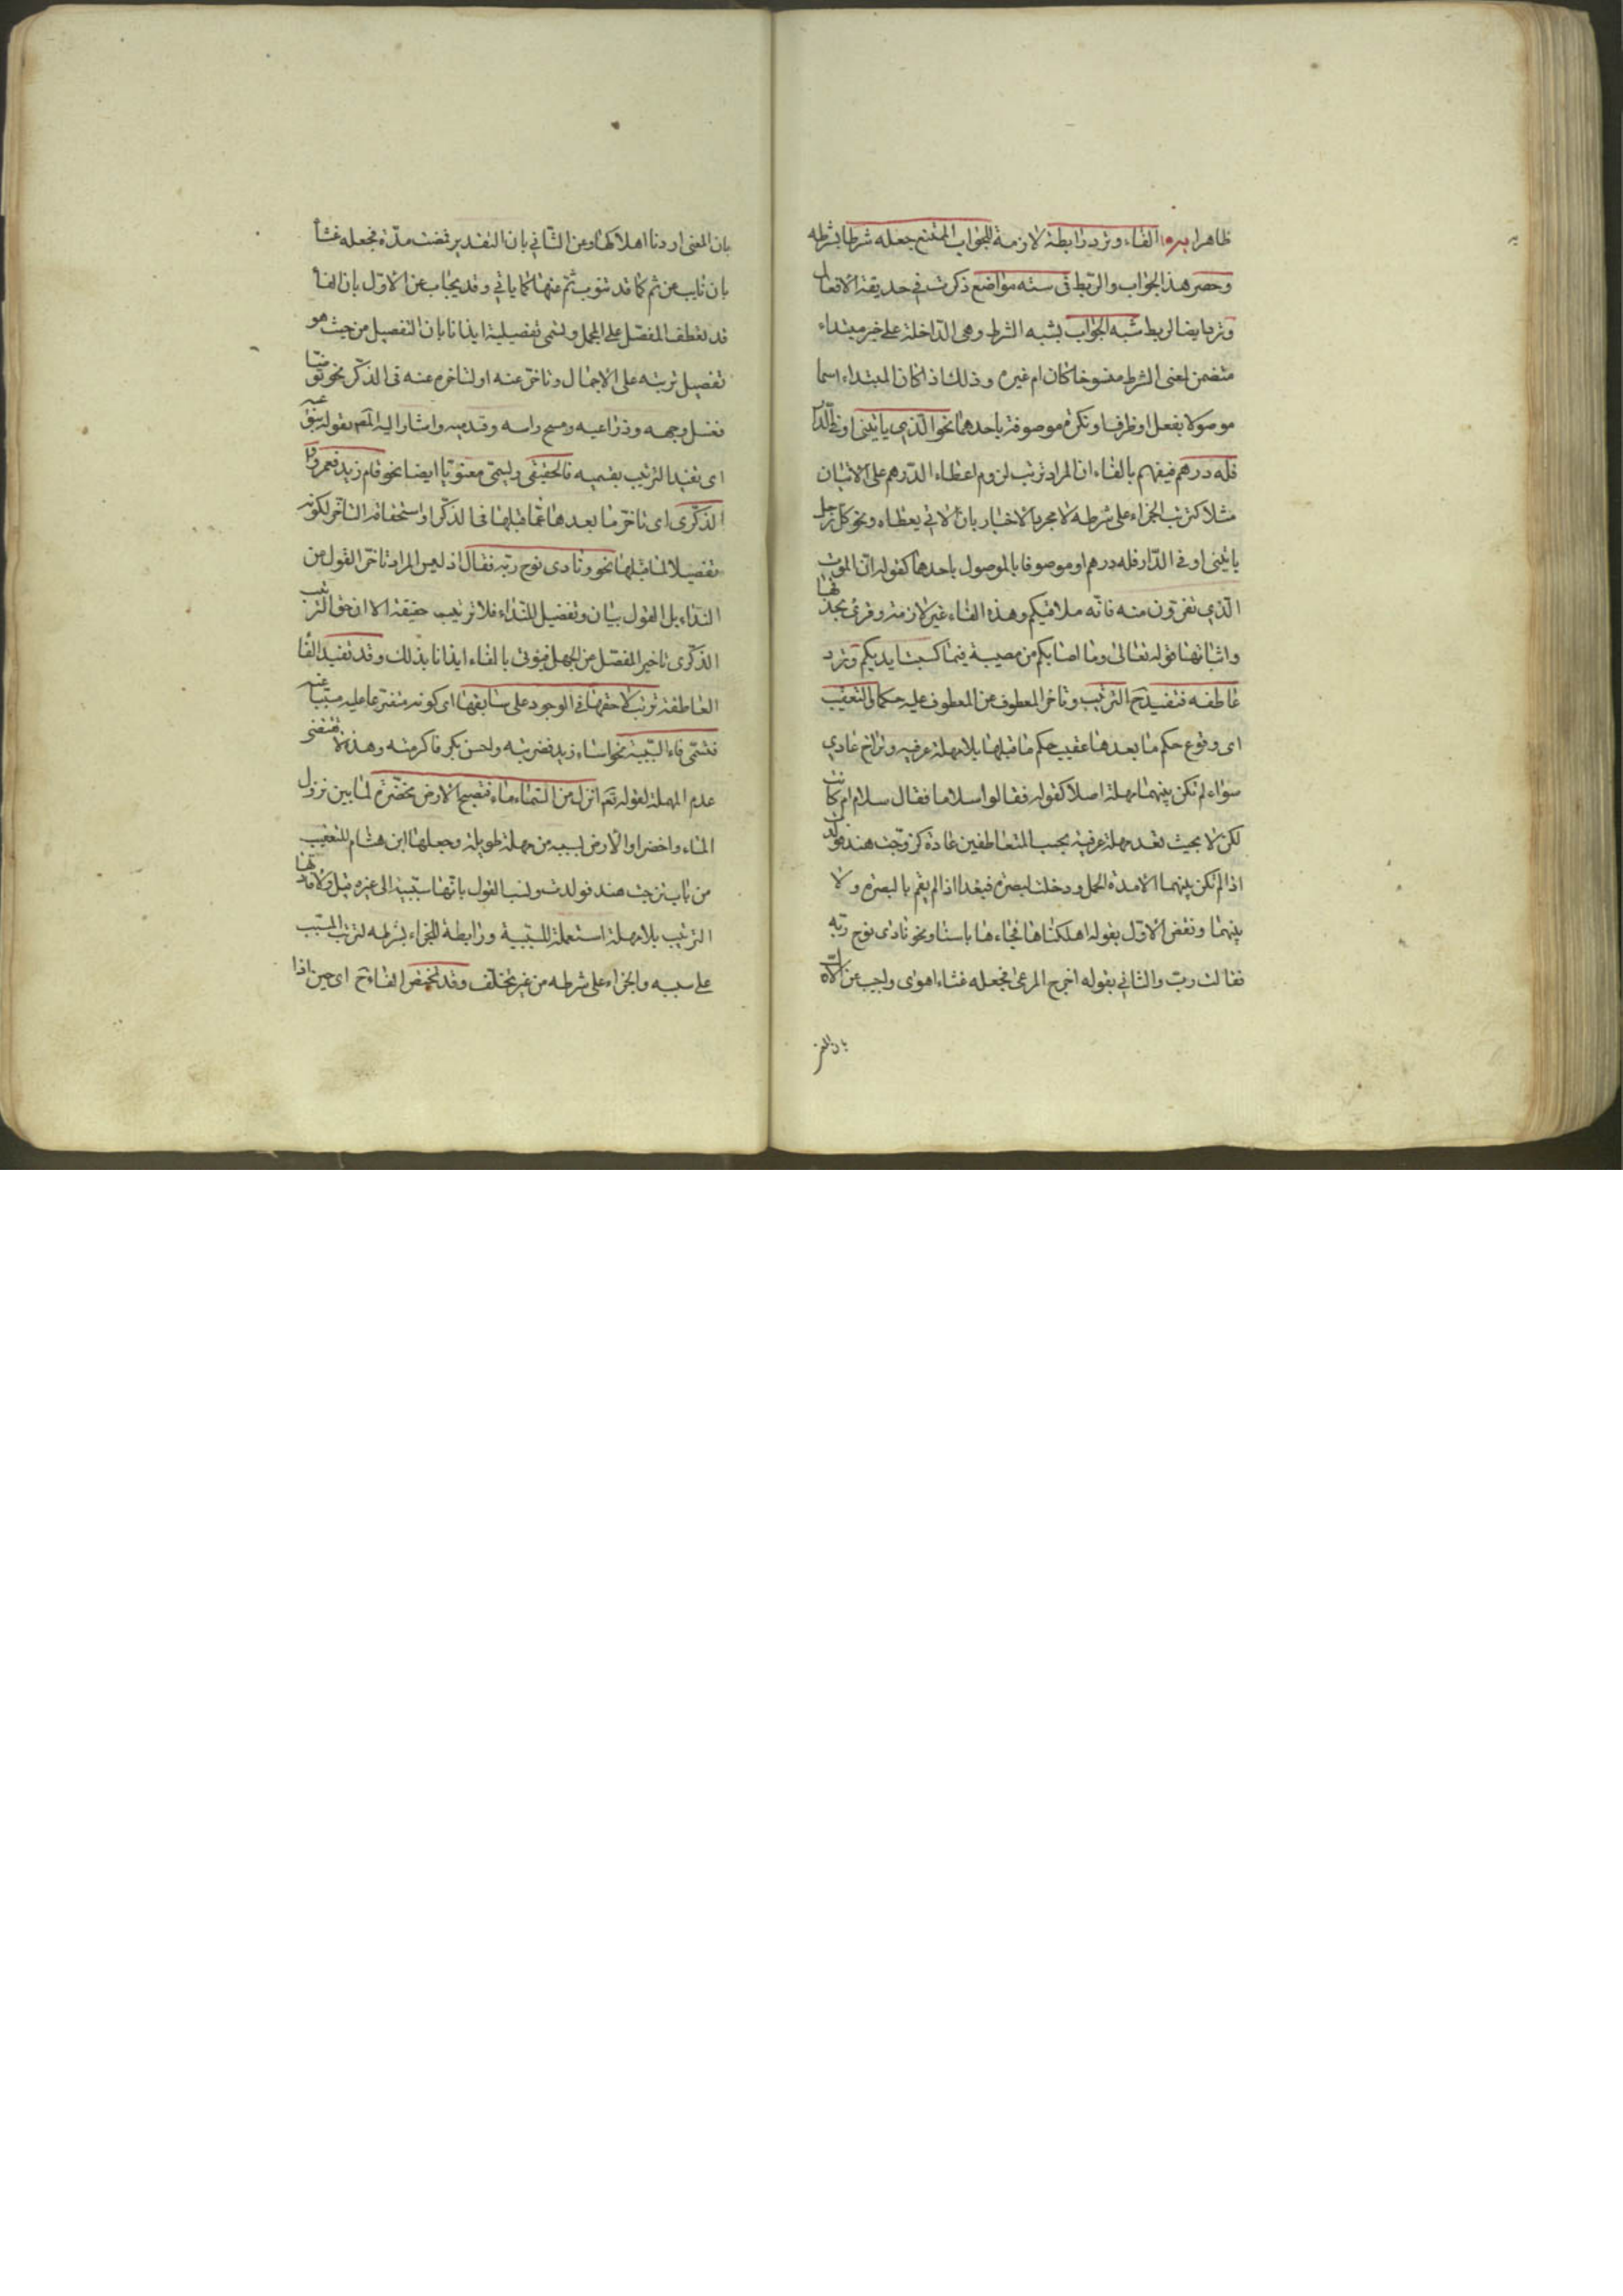 ظاهرا الفاء وترد رابطة لازمة للجواب الممتنع جعله شرطا بشرطه
وحصر هذا الجواب والربط في ستة مواضع ذكرت في حديقة الافعال
وتربط ايضا لربط شبه الجواب بشبه الشرط وهي الداخلة على خبر مبتداء
متضمن لمعنى الشرط منسوخا كان ام غيره وذلك اذا كان المبتداء اسما
موصولا بفعل او ظرف او نكرة موصوفة باحدهما نحو الذي ياتيني او في الدار
فله درهم فيفهم بالفاء ان المراد ترتب لزوم اعطاء الدرهم على الاتيان
مثلا كترتب الجزاء على شرطه لا مجرد الاخبار بان الاتي يعطاه ونحو كل رجل
ياتيني او في الدار فله درهم او موصوفا بالموصول باحدهما كقوله ان الموت
الذي تفرون منه فانه ملاقيكم وهذه الفاء غير لازمة وقرئ بحذفها
واثباتها قوله تعالى وما اصابكم من مصيبة فبما كسبت ايديكم وترد
عاطفه فتفيد ح الترتيب وتاخر المعطوف عن المعطوف عليه حكما والتعقيب
اى وقوع حكم ما بعدها عقيب حكم ما قبلها بلا مهلة عرفية وتراخ عادي
سواء لم تكن بينهما مهلة اصلا كقوله فقالوا سلاما فقال سلام ام كانت
لكن لا بحيث تعد مهلة عرفية بحسب المتعاطفين عادة كتزوجت هند فولدت
اذا لم تكن بينهما الا مدة الحمل ودخلت البصرة فبغدا اذا لم يقم بالبصرة ولا
بينهما ونقض الاول بقوله اهلكناها فجاءها باسنا ونحو نادى نوح ربه
فقال رب والثاني بقوله اخرج المرعى فجعله غثاء احوى واجيب عن الاول
بان المعنى
بان المعنى اردنا اهلاكها وعن الثاني بان التقدير فمضت مدة فجعله غثاء
بان ناب عن ثم كما قد تنوب ثم عنها كما ياتي وقد يجاب عن الاول بان الفاء
قد تعطف المفصل على المجمل وتسمى تفصيلية ايذانا بان التفصيل من حيث هو
تفصيل ترتبه على الاجمال وتاخر عنه او لتاخره عنه في الذكر نحو توضا
فغسل وجهه وذراعيه ومسح راسه وقدميه واشار اليه المص بقوله
اى تفيد الترتيب بقسميه فالحقيقى ويسمى معنويا ايضا نحو قام زيد فعمرو
الذكرى اى تاخر ما بعدها عما قبلها في الذكر او استحقاقه التاخر لكونه
تفصيلا لما قبلها نحو ونادى نوح ربه فقال اذ ليس المراد تاخر القول عن
النداء بل القول بيان وتفصيل للنداء فلا ترتيب حقيقة الا ان حق الترتيب
الذكرى تاخير المفصل عن المجمل فيؤتى بالفاء ايذانا بذلك وقد تفيد الفا
العاطفة ترتب لاحقها في الوجود على سابقها اى كونه متفرعا عليه مسببا عنه
فتسمى فاء السببية نحو اساء زيد فضربته واحسن بكر فاكرمته وهذه لا تقتضى
عدم المهلة لقوله تعم انزل من السماء ماء فتصبح الارض مخضرة لما بين نزول
الماء واخضرار الارض بسببه من مهلة طويلة وجعلها ابن هشام للتعقيب
من باب تزوجت هند فولدت ونسب القول بانها سببية الى غيره قيل
الترتيب بلا مهلة استعملت للسببية ورابطة للجزاء بشرطه لترتب المسبب
على سببه والجزاء على شرطه من غير تخلف وقد تمحض الفاء ح اى حين اذا